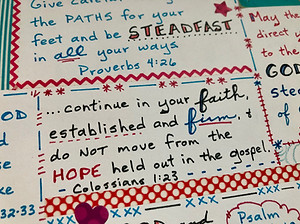 Give careful
the PATHS for your
feet and be STEADFAST
in all your ways
Proverbs 4:26
May th
direct y
to th
GOD
stea
of
...continue in your faith,
established and firm, &
do NOT move from the
HOPE held out in the gospel.
- Colossians 1:23
OD
d
se
ke
32:33
XXX
XXX
Psalm